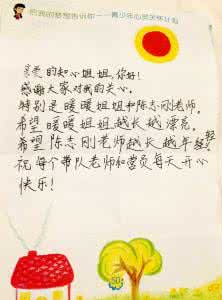 把我的梦想告诉你——青少年心灵关怀计划
亲爱的知心姐姐,你好!
感谢大家对我的关心。
特别是暖暖姐姐和陈志刚老师。
希望暖暖姐姐越长越漂亮。
希望陈志刚老师越长越年轻。
祝每个带队老师和营员每天开心
快乐!
50